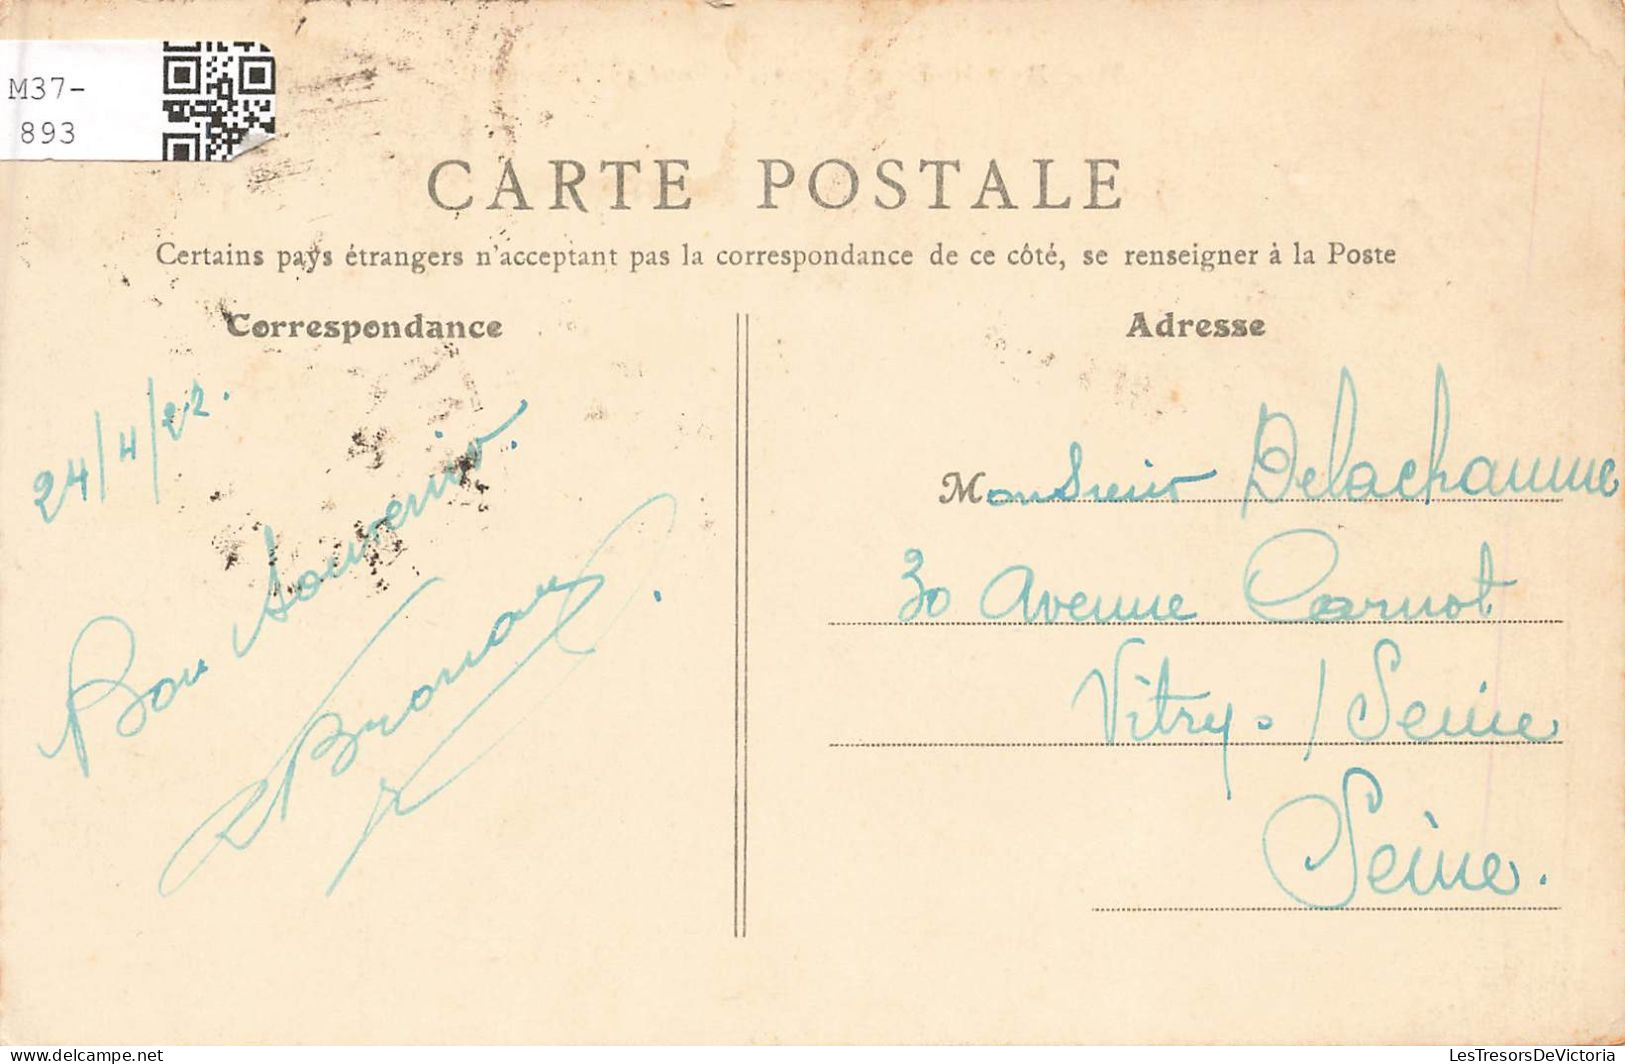 M37-
893
CARTE POSTALE
Certains pays étrangers n'acceptant pas la correspondance de ce côté, se renseigner à la Poste
Correspondance
24/4/22.
Bon Souvenir.
Adresse
Monsieur Delachaume
30 Avenue Carnot
Vitry-s/Seine
Seine.
delcampe.net
LesTresorsDeVictoria